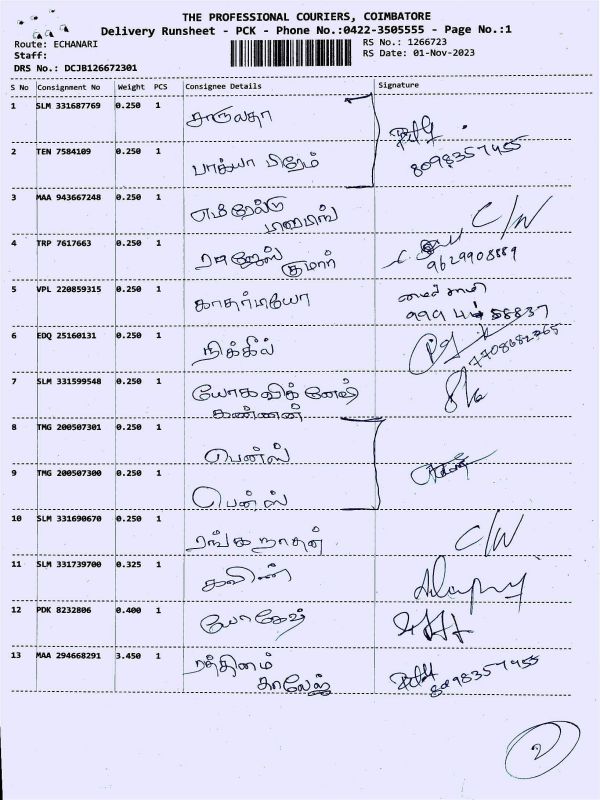 THE PROFESSIONAL COURIERS, COIMBATORE
Delivery Runsheet - PCK - Phone No.:0422-3505555 - Page No.:1
Route: ECHANARI
RS No.: 1266723
Staff:
RS Date: 01-Nov-2023
DRS No.: DCJB126672301
S No Consignment No Weight PCS Consignee Details Signature
1 SLM 331687769 0.250 1 சாருலதா
8098357455
2 TEN 7584109 0.250 1 பாக்யா பிரேம்
3 MAA 943667248 0.250 1 C/W
4 TRP 7617663 0.250 1 ராஜேஸ்
குமார் 9629908889
5 VPL 220859315 0.250 1
6 EDQ 25160131 0.250 1 நிக்கில் 7708682365
7 SLM 331599548 0.250 1 யோகவிக்னேஷ்
கண்ணன்
8 TMG 200507301 0.250 1 பென்ஸ்
9 TMG 200507300 0.250 1 பென்ஸ்
10 SLM 331690670 0.250 1 ரங்கநாதன் C/W
11 SLM 331739700 0.325 1 கவின்
12 PDK 8232806 0.400 1 யோகேஷ்
13 MAA 294668291 3.450 1 ரத்தினம்
காலேஜ் 8098357455
2